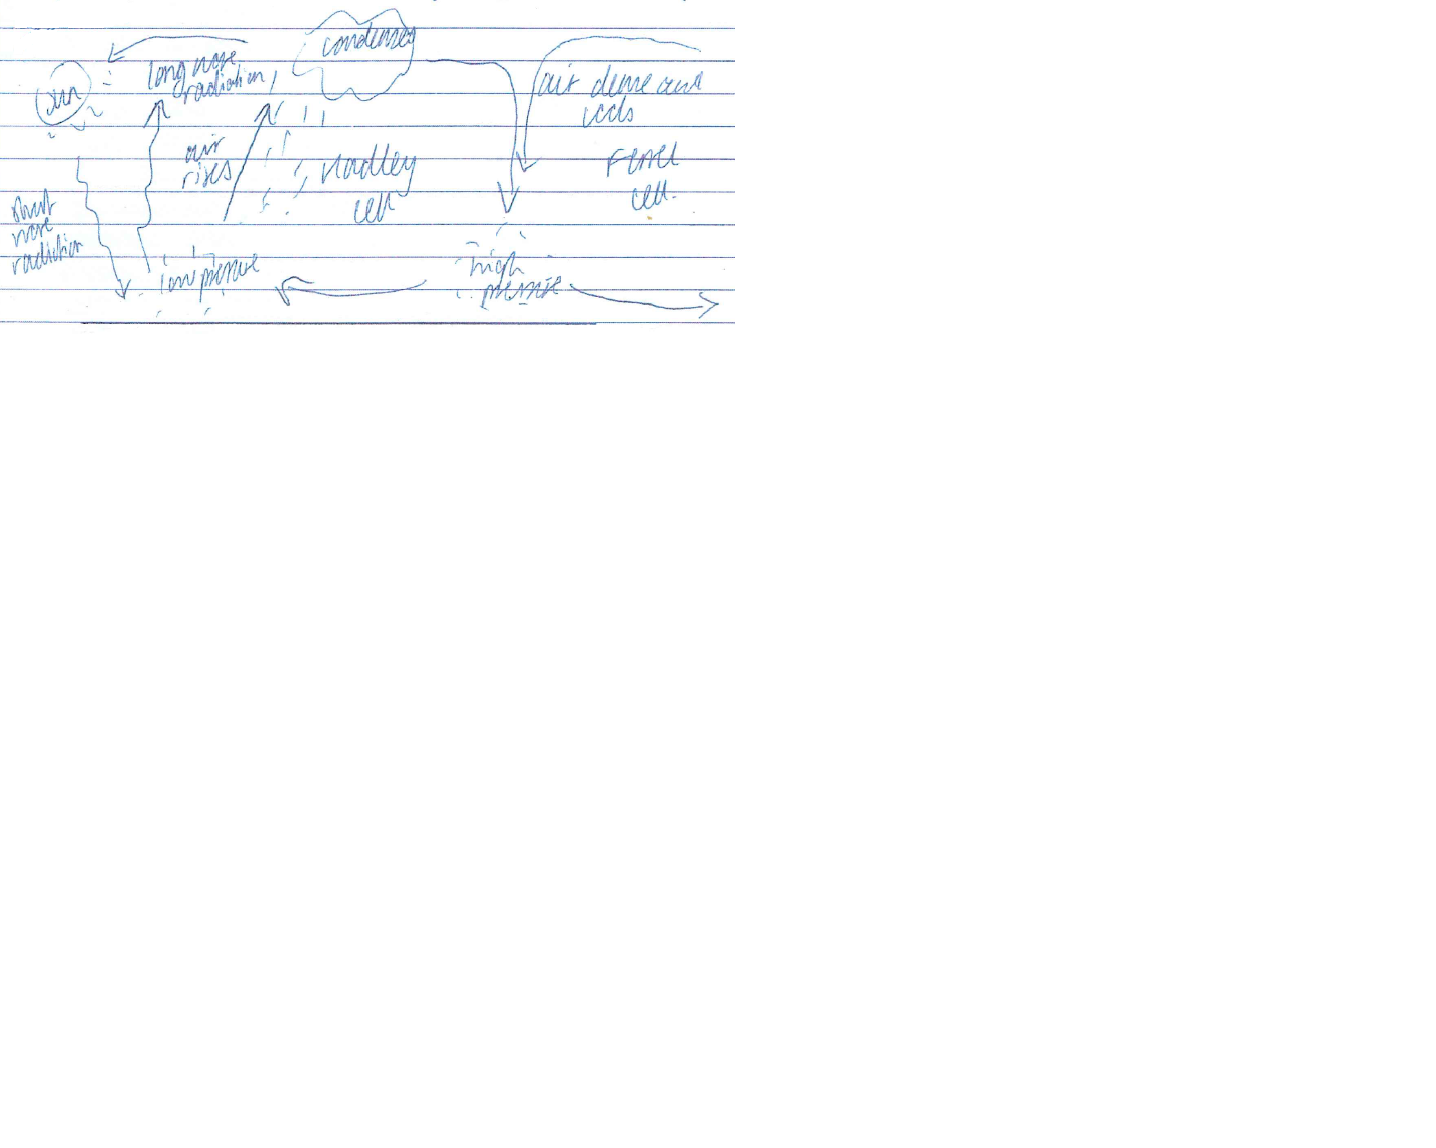 condenses
long wave
radiation
sun
air dense and
cools
air
rises
Hadley
cell
Ferrel
cell.
short
wave
radiation
low pressure
high
pressure